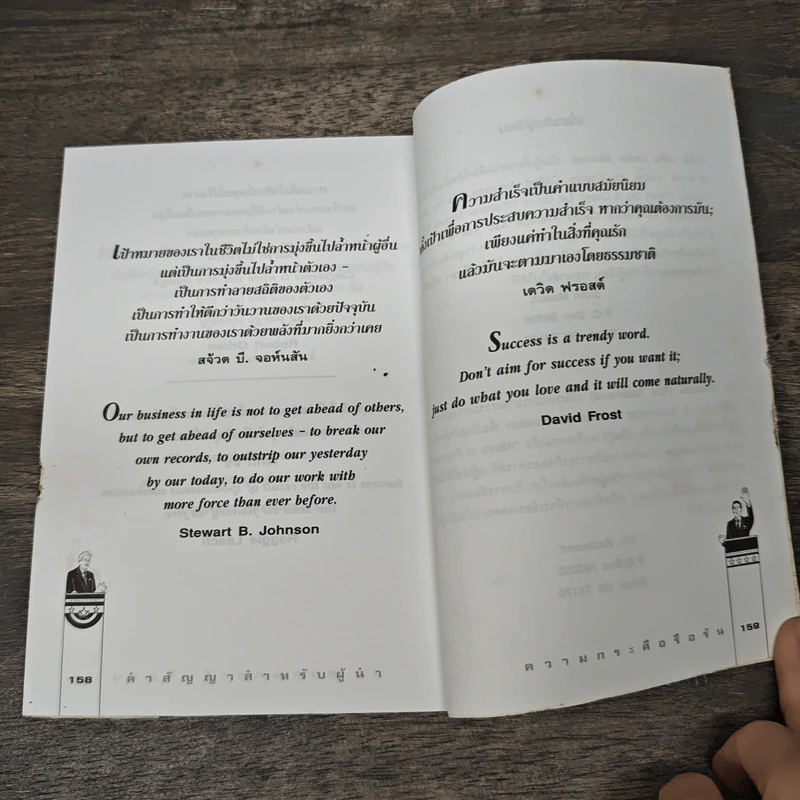 เป้าหมายของเราในชีวิตไม่ใช่การมุ่งขึ้นไปล้ำหน้าผู้อื่น
แต่เป็นการมุ่งขึ้นไปล้ำหน้าตัวเอง –
เป็นการทำลายสถิติของตัวเอง
เป็นการทำให้ดีกว่าวันวานของเราด้วยปัจจุบัน
เป็นการทำงานของเราด้วยพลังที่มากยิ่งกว่าเคย
สจ๊วต บี. จอห์นสัน
Our business in life is not to get ahead of others,
but to get ahead of ourselves – to break our
own records, to outstrip our yesterday
by our today, to do our work with
more force than ever before.
Stewart B. Johnson
158 คำสัญญาสำหรับผู้นำ
ความสำเร็จเป็นคำแบบสมัยนิยม
ตั้งเป้าเพื่อการประสบความสำเร็จ หากว่าคุณต้องการมัน;
เพียงแค่ทำในสิ่งที่คุณรัก
แล้วมันจะตามมาเองโดยธรรมชาติ
เดวิด ฟรอสต์
Success is a trendy word.
Don't aim for success if you want it;
just do what you love and it will come naturally.
David Frost
ความกระตือรือร้น 159